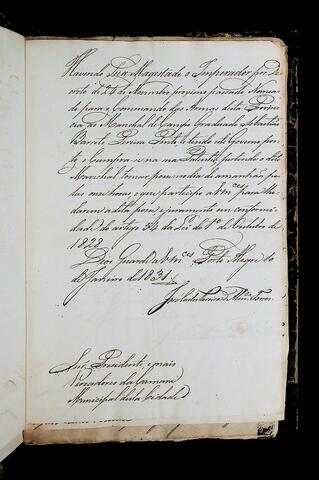 Havendo Sua Magestade o Imperador por De
creto de 24 de Novembro proximo passado Nomea
do para o Commando das Armas desta Provin
cia ao Marechal de Campo Graduado Sebastião
Barreto Pereira Pinto, e tendo este Governo pos
to o Cumpra-se na sua Patente, pertende o dito
Marechal tomar posse no dia de amanhã pe
las onze horas, o que participo a Vm.ces para lhe
darem a dita posse e juramento em conformida
de do artigo 54 da Lei do 1º de Outubro de
1828
Deos Guarde a Vm.ces Porto Alegre 10
de Janeiro de 1831
Snr. Presidente, e mais
Vereadores da Camara
Municipal desta Cidade